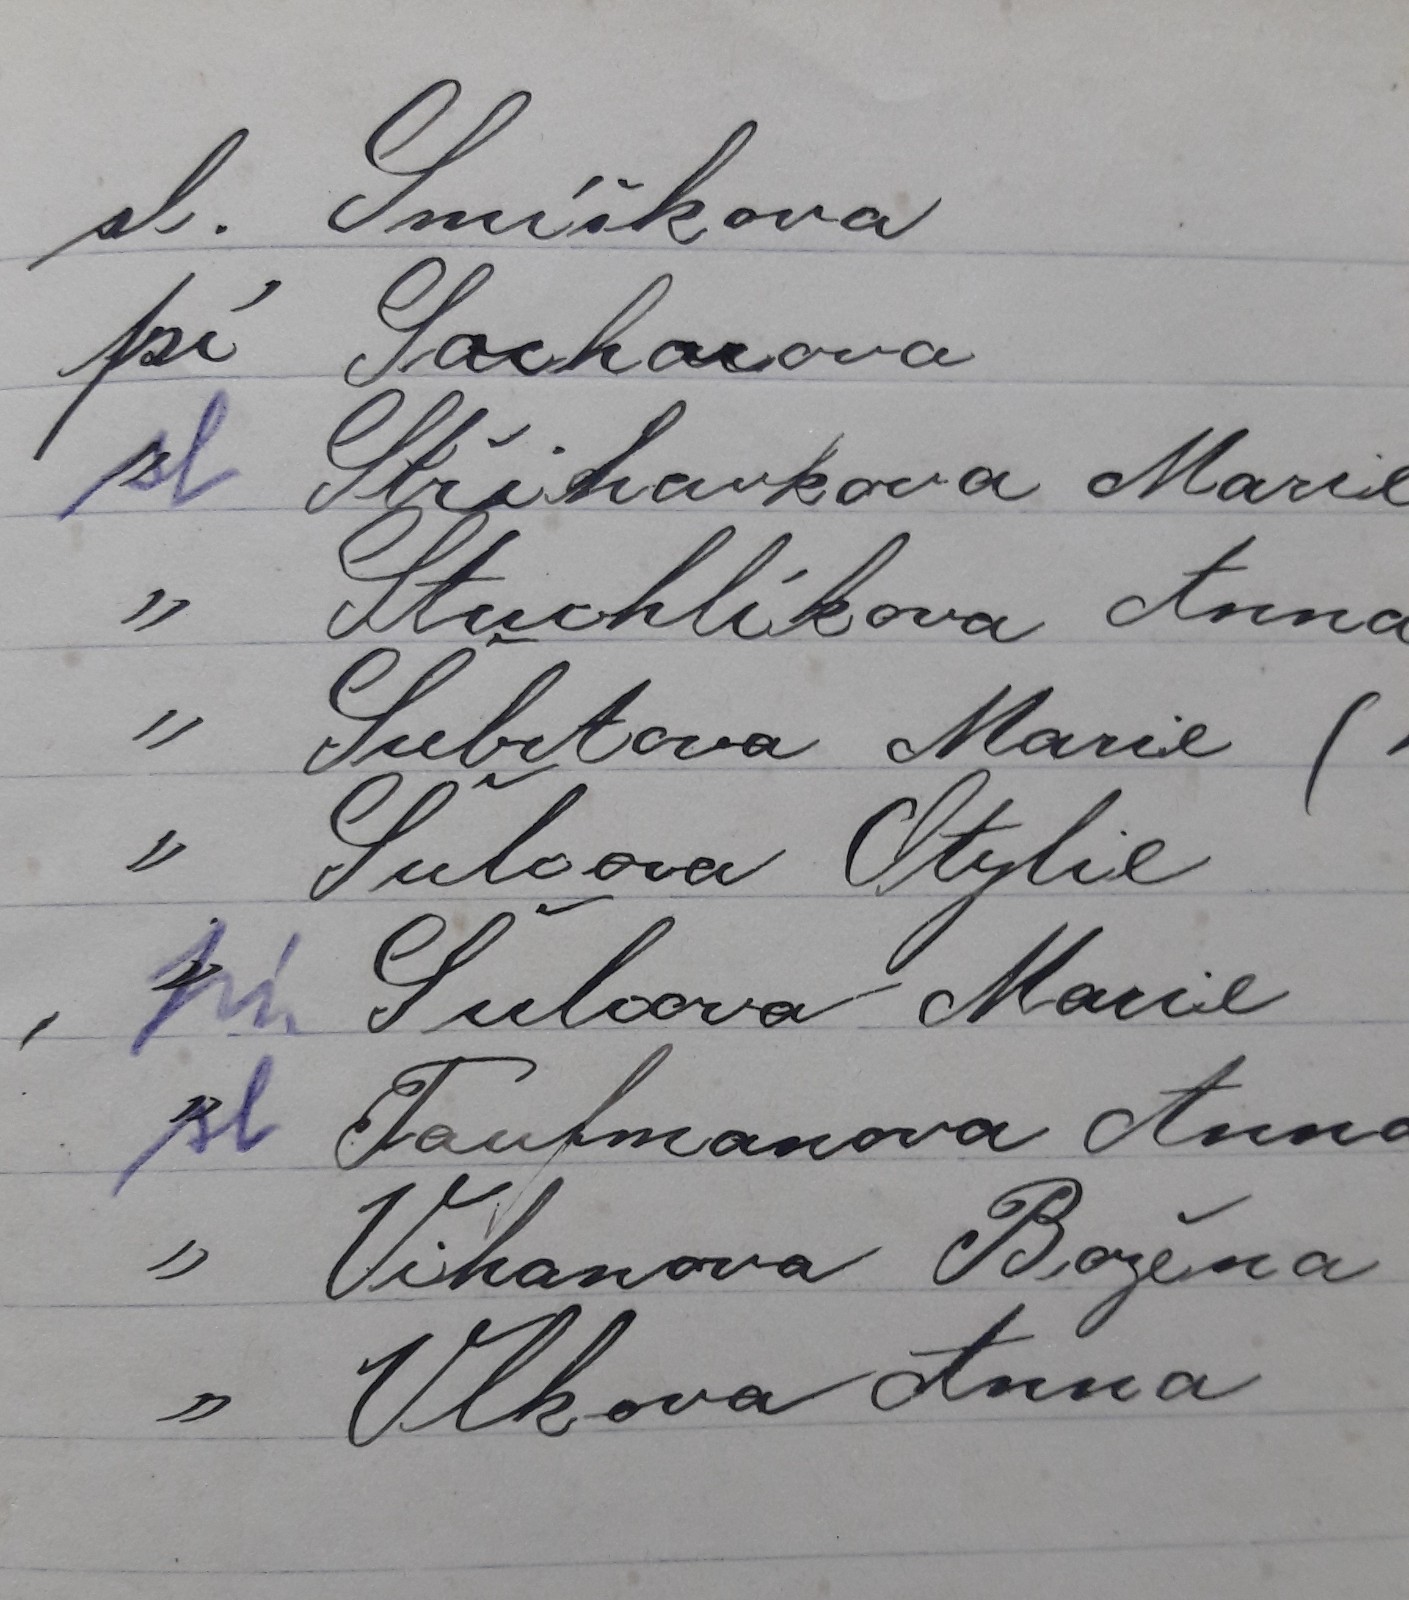 sl. Smíškova
pí Sacharova
sl Střihavkova Marie
" Stuchlíkova Anna
" Šubrtova Marie (
" Šulcova Otylie
pí. Šulcova Marie
sl Taufmanova Anna
" Vihanova Božena
" Vlkova Anna